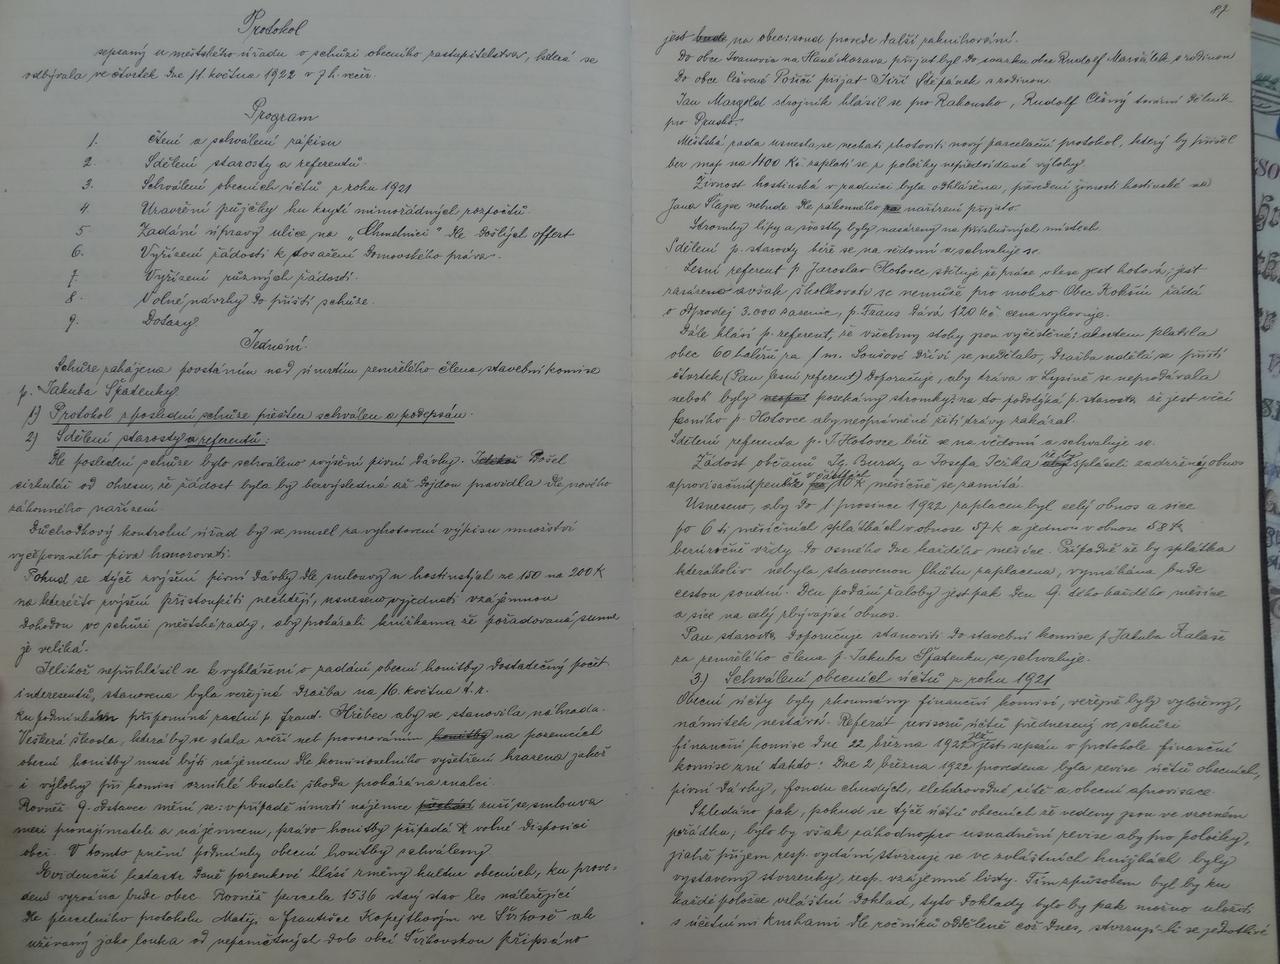 Protokol
sepsaný u městského úřadu o schůzi obecního zastupitelstva, která se
odbývala ve čtvrtek dne 11. května 1922 v 7 h. večír.
Program
1. Čtení a schválení zápisu
2. Sdělení starosty a referentů.
3. Schválení obecních účtů z roku 1921
4. Uzavření půjčky ku krytí mimořádných rozpočtů.
5 Zadání úpravy ulice na „Chmelnici" dle došlých offert
6. Vyřízení žádostí k dosažení domovského práva.
7. Vyřízení různých žádostí.
8. Volné návrhy do příští schůze.
9. Dotazy
Jednání.
Schůze zahájena povstáním nad úmrtím zemřelého člena stavební komise
p. Jakuba Špatenky.
1) Protokol z poslední schůze přečten schválen a podepsán.
2) Sdělení starosty a referentů:
Dle poslední schůze bylo schváleno zvýšení pivní dávky. Došel
cirkulár od okresu, že žádost byla by bezvýsledna až dojdou pravidla dle nového
zákonného nařízení.
Důchodkový kontrolní úřad by se musel za vyhotovení výpisu množství
vyčepovaného piva honorovati.
Pokud se týče zvýšení pivní dávky dle smlouvy u hostinských ze 150 na 200 K
na kteréžto zvýšení přistoupiti nechtějí, usneseno vyjednati vzájemnou
dohodou ve schůzi městské rady, aby prokázali knížkama že požadovaná suma
je veliká.
Jelikož nepřihlásil se k vyhlášení o zadání obecní honitby dostatečný počet
interesentů, stanovena byla veřejná dražba na 16. května t. r.
ku podmínkám připomíná radní p. Frant. Hříbec aby se stanovila náhrada.
Veškerá škoda, která by se stala zvěří neb provozováním honitby na pozemcích
obecní honitby musí býti nájemcem dle komisionelního vyšetření hrazena jakož
i výlohy při komisi vzniklé budeli škoda prokázána znalci.
Rovněž 9. odstavec mění se: v případě úmrtí nájemce ruší se smlouva
mezi pronajímateli a nájemcem, právo honitby připadá k volné disposici
obci. V tomto znění podmínky obecní honitby schváleny.
Evidenční katastr daně pozemkové hlásí změny kultur obecních, ku prove-
dení vyzvána bude obec. Rovněž parcela 1536 starý stav les náležející
dle parcelního protokolu Matěji a Františce Kopejtkovým ve Svitkově ale
užívaný jako louka od nepamětných dob obcí Svitkovskou připsáno
87
jest bude na obec: soud provede další zaknihování.
Do obce Ivanovic na Hané Morava přijat byl do svazku obce Rudolf Maršálek s rodinou
Do obce Červené Poříčí přijat Jiří Štěpánek s rodinou.
Jan Margold strojník hlásil se pro Rakousko, Rudolf Černý tovární dělník
pro Prusko.
Městská rada usnesla se nechati zhotoviti nový parcelační protokol, který by přišel
bez map na 1100 Kč zaplatí se z položky nepředvídané výlohy.
Živnost hostinská v radnici byla odhlášena, převedení živnosti hostinské na
Jana Šlajse nebude dle zákonného nařízení přijato.
Stromky lípy a švestky byly nasázeny na příslušných místech.
Sdělení p. starosty béře se na vědomí a schvaluje se.
Lesní referent p. Jaroslav Hotovec sděluje že práce v lese jest hotová; jest
zasázeno avšak školkovati se nemůže pro mokro. Obec Kokšín žádá
o odprodej 3.000 sazenic, p. Traus dává 120 Kč cena vyhovuje.
Dále hlásí p. referent, že všechny stohy jsou vyčištěné: akordem platila
obec 60 haléřů za 1 m. Soušové dříví se, nedělalo, dražba nadělí se příští
čtvrtek (Pan lesní referent) doporučuje, aby tráva v Lysině se neprodávala
neboť byly posekány stromky: na to podotýká p. starosta že jest věcí
samého p. Hotovce aby neoprávněné žití trávy zakázal.
Sdělení referenta p. J. Hotovce béře se na vědomí a schvaluje se.
Žádost občanů Ig. Burdy a Josefa Ježka že by spláceli zadržený obnos
aprovisačních peněz v částce 10 K, měsíčně se zamítá.
Usneseno, aby do 1 prosince 1922 zaplacen byl celý obnos a sice
po 6 ti měsíčních splátkách v obnose 57 K a jednou v obnose 58 K
bezúročně vždy do osmého dne každého měsíce. Případně že by splátka
kterákoliv nebyla stanovenou lhůtu zaplacena, vymáhána bude
cestou soudní. Den podání žaloby jest pak den 9. tého každého měsíce
a sice na celý zbývající obnos.
Pan starosta doporučuje stanoviti do stavební komise p. Jakuba Zalaše
za zemřelého člena p. Jakuba Špatenku se schvaluje.
3.) Schválení obecních účtů z roku 1921
Obecní účty byly zkoumány finanční komisí, veřejně byly vyloženy,
námitek nestává. Referát revisorů účtů přednesený ve schůzi
finanční komise dne 22 března 1922 jež jest sepsán v protokole finanční
komise zní takto: Dne 2 března 1922 provedena byla revise účtů obecních,
pivní dávky, fondu chudých, elektrovodné sítě a obecní aprovisace.
Shledáno pak, pokud se týče účtů obecních že vedeny jsou ve vzorném
pořádku; bylo by však záhodno pro usnadnění revise aby pro položky,
jichž příjem resp. vydání stvrzuje se ve zvláštních knížkách byly
vystaveny stvrzenky, resp. vzájemné listy. Tím způsobem byl by ku
každé položce zvláštní doklad, tyto doklady bylo by pak možno uložiti
s účetními knihami dle ročníků odděleně což dnes, stvrzují-li se jednotlivé